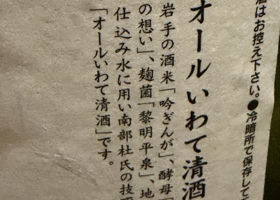 酒はお控え下さい。●冷暗所で保存して
オールいわて清酒
岩手の酒米「吟ぎんが」、酵母「
の想い」、麹菌「黎明平泉」、地
仕込み水に用い南部杜氏の技
「オールいわて清酒」です。